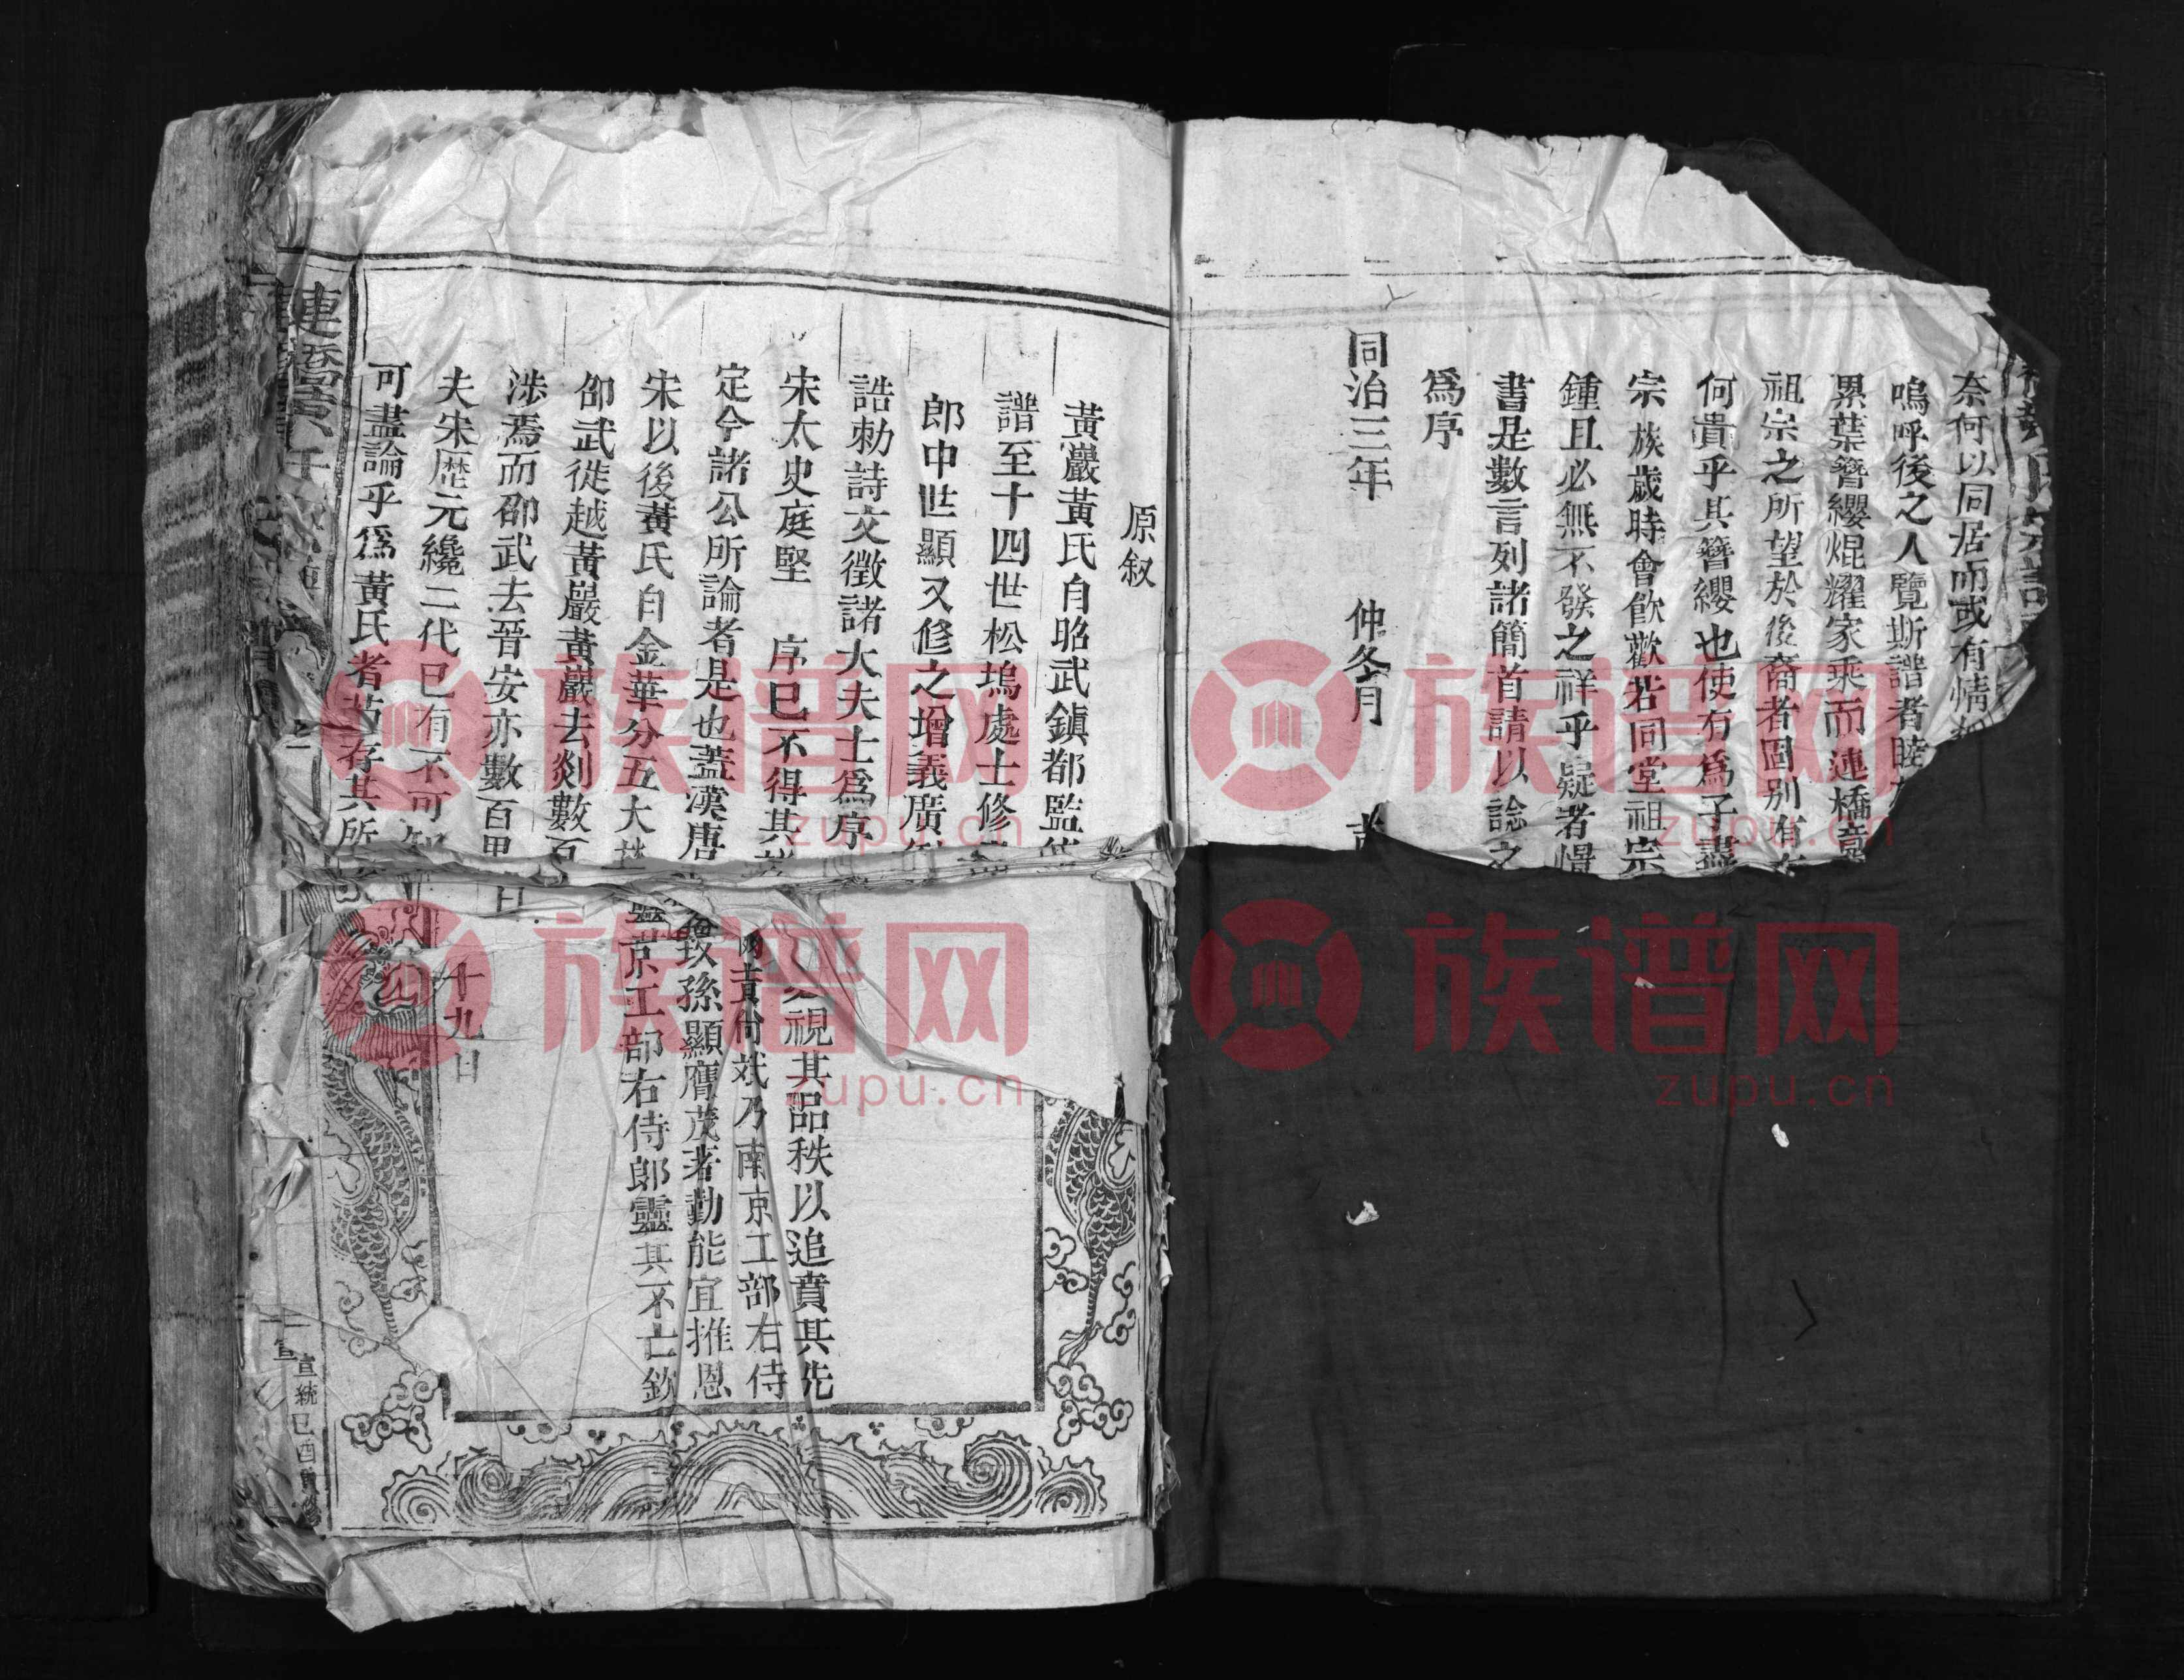 奈何以同居而或有情
嗚呼後之人覽斯譜者睦
累葉簪纓焜耀家乘而連橋
祖宗之所望於後裔者固別有
何貴乎其簪纓也使有爲子盡
宗族歲時會飲歡若同堂祖宗
鍾且必無不發之祥乎疑者惜
書是數言列諸簡首請以誌之
爲序
同治三年 仲冬月
原叙
黃巖黃氏自昭武鎮都監
譜至十四世松塢處士修
郎中世顯又修之增義廣
誥勅詩文徵諸大夫士爲序
宋太史庭堅 序已不得其
定今諸公所論者是也蓋漢唐
宋以後黃氏自金華分五大
邵武徙越黃巖黃巖去剡數百
涉焉而邵武去晉安亦數百里
夫宋歷元纔二代已有不可知
可盡論乎爲黃氏者姑存其所
連橋
視其品秩以追賁其先
黃尙斌乃南京工部右侍
孫顯膺茂著勤能宜推恩
京工部右侍郎靈其不亡欽
十九日
宣統己酉重修
族谱网
zupu.cn
族谱网
zupu.cn
族谱网
zupu.cn
族谱网
zupu.cn